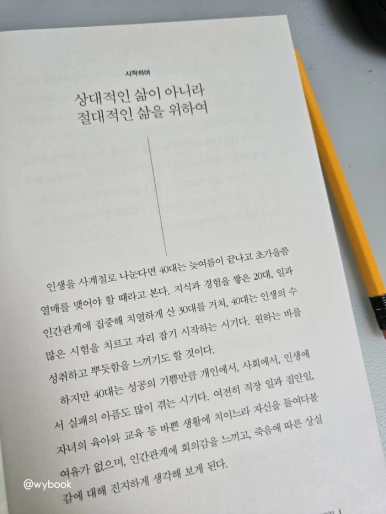 시작하며
상대적인 삶이 아니라
절대적인 삶을 위하여
인생을 사계절로 나눈다면 40대는 늦여름이 끝나고 초가을쯤
열매를 맺어야 할 때라고 본다. 지식과 경험을 쌓은 20대, 일과
인간관계에 집중해 치열하게 산 30대를 거쳐, 40대는 인생의 수
많은 시험을 치르고 자리 잡기 시작하는 시기다. 원하는 바를
성취하고 뿌듯함을 느끼기도 할 것이다.
하지만 40대는 성공의 기쁨만큼 개인에서, 사회에서, 인생에
서 실패의 아픔도 많이 겪는 시기다. 여전히 직장 일과 집안일,
자녀의 육아와 교육 등 바쁜 생활에 치이느라 자신을 들여다볼
여유가 없으며, 인간관계에 회의감을 느끼고, 죽음에 따른 상실
감에 대해 진지하게 생각해 보게 된다.
@wybook